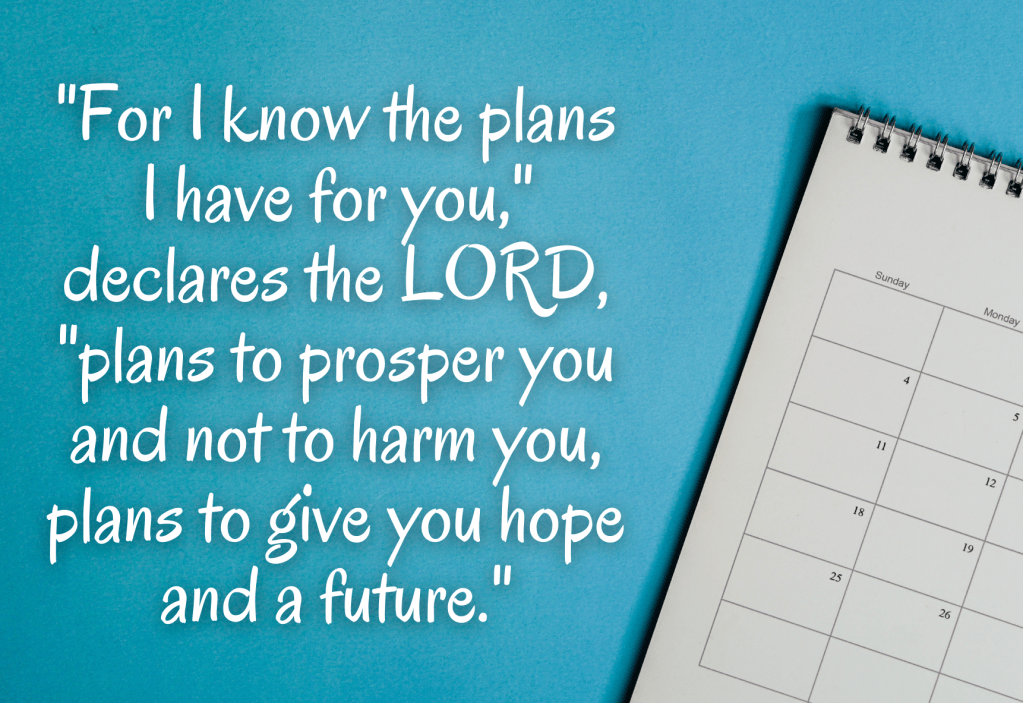 "For I know the plans
I have for you,"
declares the LORD,
"plans to prosper you
and not to harm you,
plans to give you hope
and a future."
Sunday
Monday
4
5
11
12
18
19
25
26